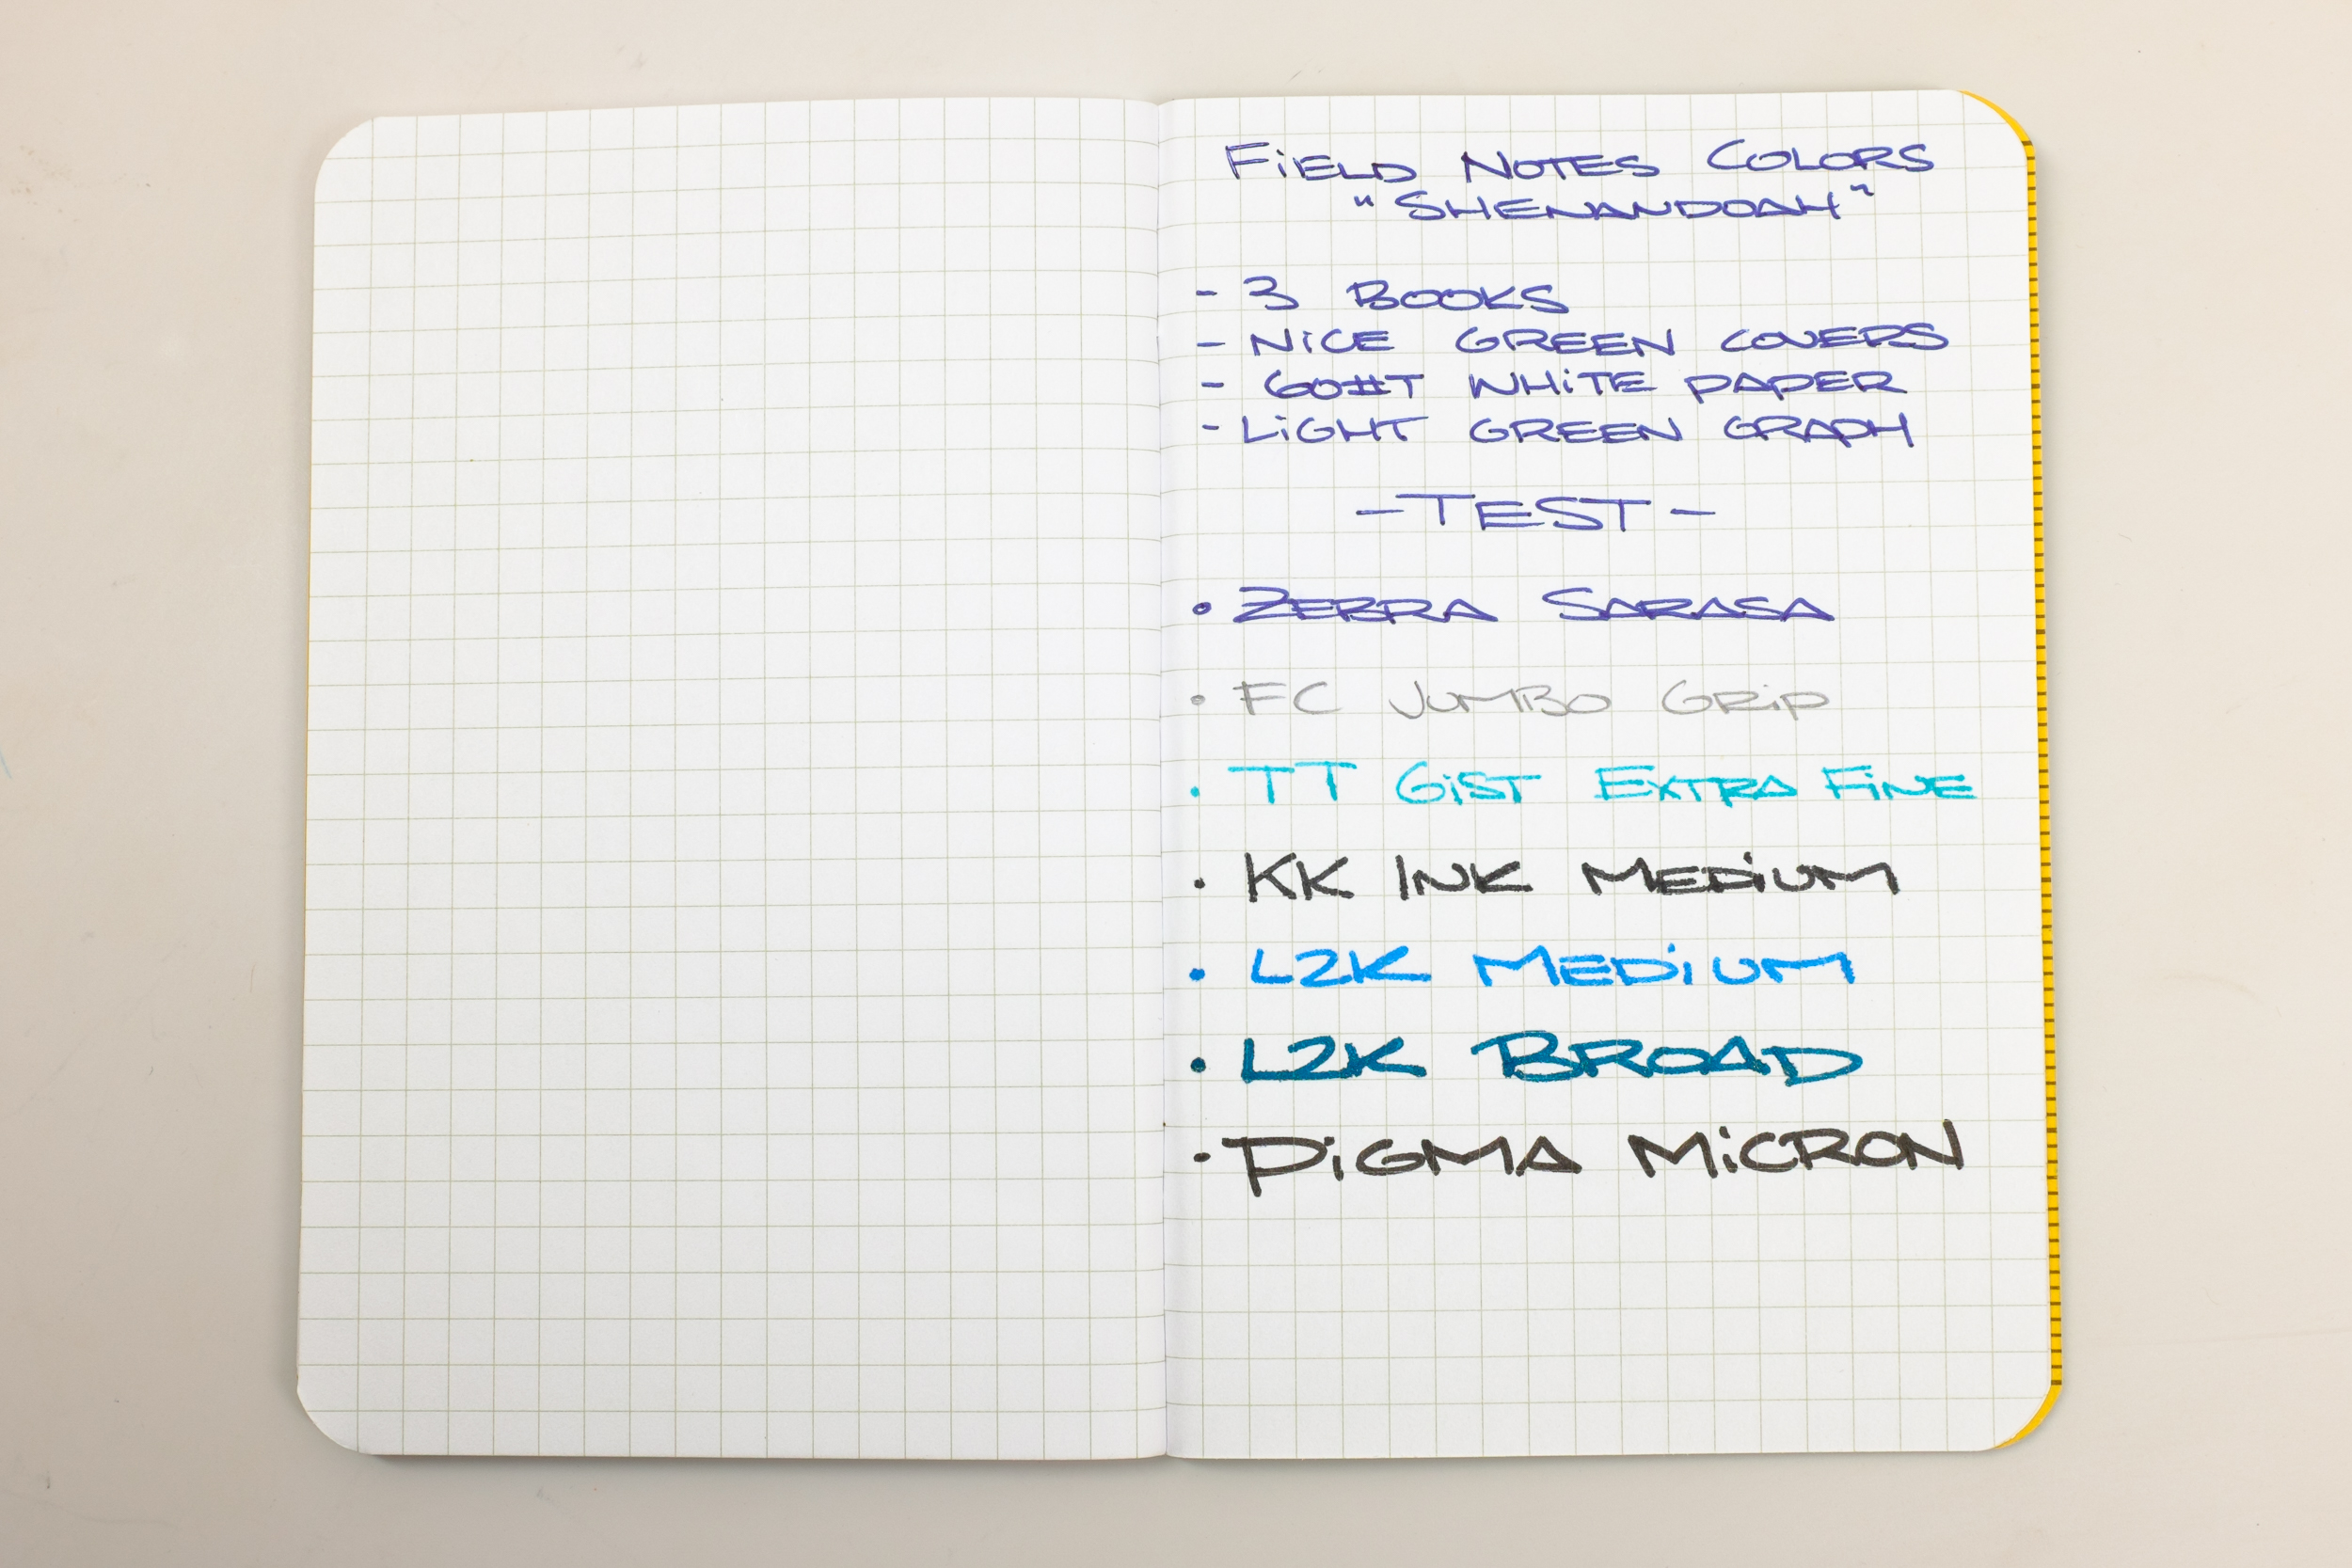 FiELD NOTES COLORS
"SHENANDOAH"
- 3 BOOKS
- NiCE GREEN COVERS
- 60#T WHiTE PAPER
- LiGHT GREEN GRAPH
- TEST -
• ZEBRA SARASA
• FC JUMBO GRiP
• TT GiST EXTRA FiNE
• KK INK MEDiUM
• L2K MEDiUM
• L2K BROAD
• PiGMA MiCRON